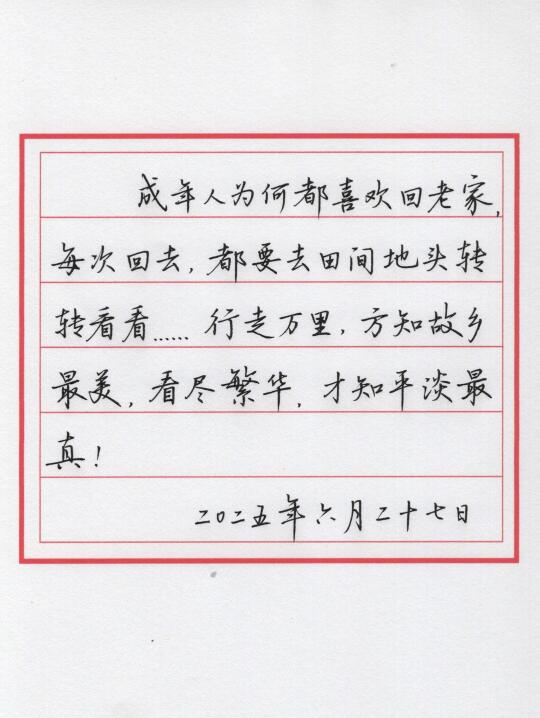 成年人为何都喜欢回老家,
每次回去,都要去田间地头转
转看看…… 行走万里,方知故乡
最美,看尽繁华,才知平淡最
真!
二〇二五年六月二十七日